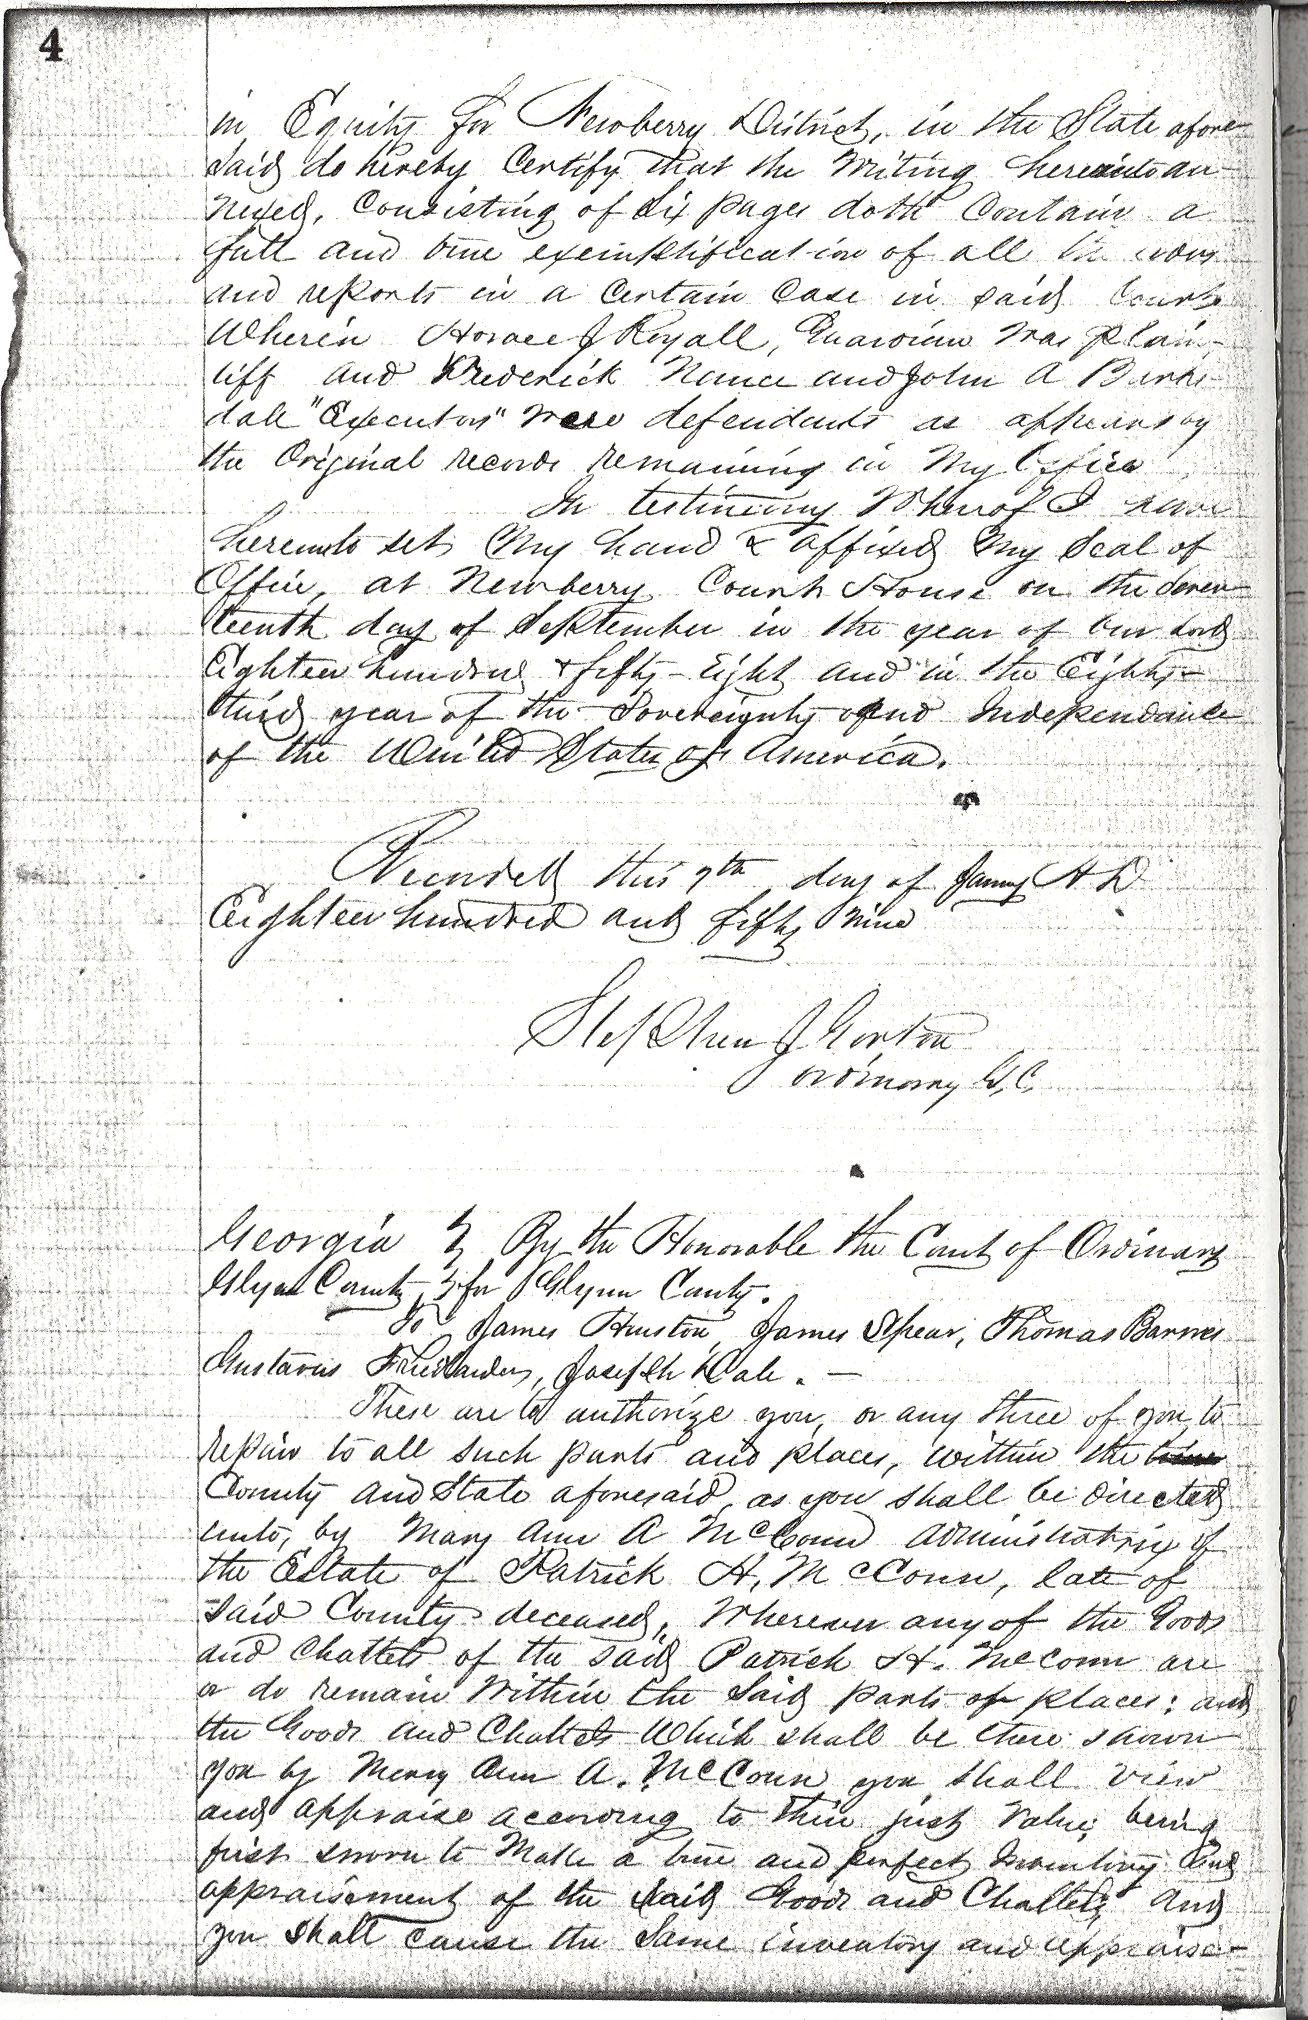 4
in Equity for Newberry District, in the State afore-
said do hereby Certify that the Writing hereinto an-
nexed, Consisting of Six pages doth Contain a
full and true exemplification of all the
and reports in a Certain Case in said Court
Wherein Horace J Royall, Guardian was plain-
tiff and Frederick Nance and John A Barks-
dale "Executors" were defendants as appears by
the Original records remaining in My Office
In testimony Whereof I have
hereunto set My hand & affixed My Seal of
Office, at Newberry Court House on the Seven-
teenth day of September in the year of our Lord
Eighteen hundred & fifty-Eight and in the Eighty-
third year of the Sovereignty and Independance
of the United States of America.
Recorded this 7th day of Jany A D
Eighteen hundred and fifty Nine
Stephen J Gorton
Ordinary G, C,
Georgia } By the Honorable the Court of Ordinary
Glynn County } for Glynn County.
To James Huston, James Spear, Thomas Barnes
Gustavus Friedlander, Joseph Dale. —
These are to authorize you, or any three of you, to
repair to all such parts and places, within the
County and State aforesaid, as you shall be directed
unto, by Mary Ann A McConn administratrix of
the Estate of Patrick H, McConn, late of
said County deceased, Wherever any of the Goods
and Chattels of the said Patrick H. McConn are
or do remain Within the Said parts or places; and
the Goods and Chattels Which shall be there shown
you by Mary Ann A. McConn you shall view
and appraise according to their just Value; being
first sworn to Make a true and perfect Inventory and
appraisement of the said Goods and Chattels, and
you shall cause the Same inventory and appraise-